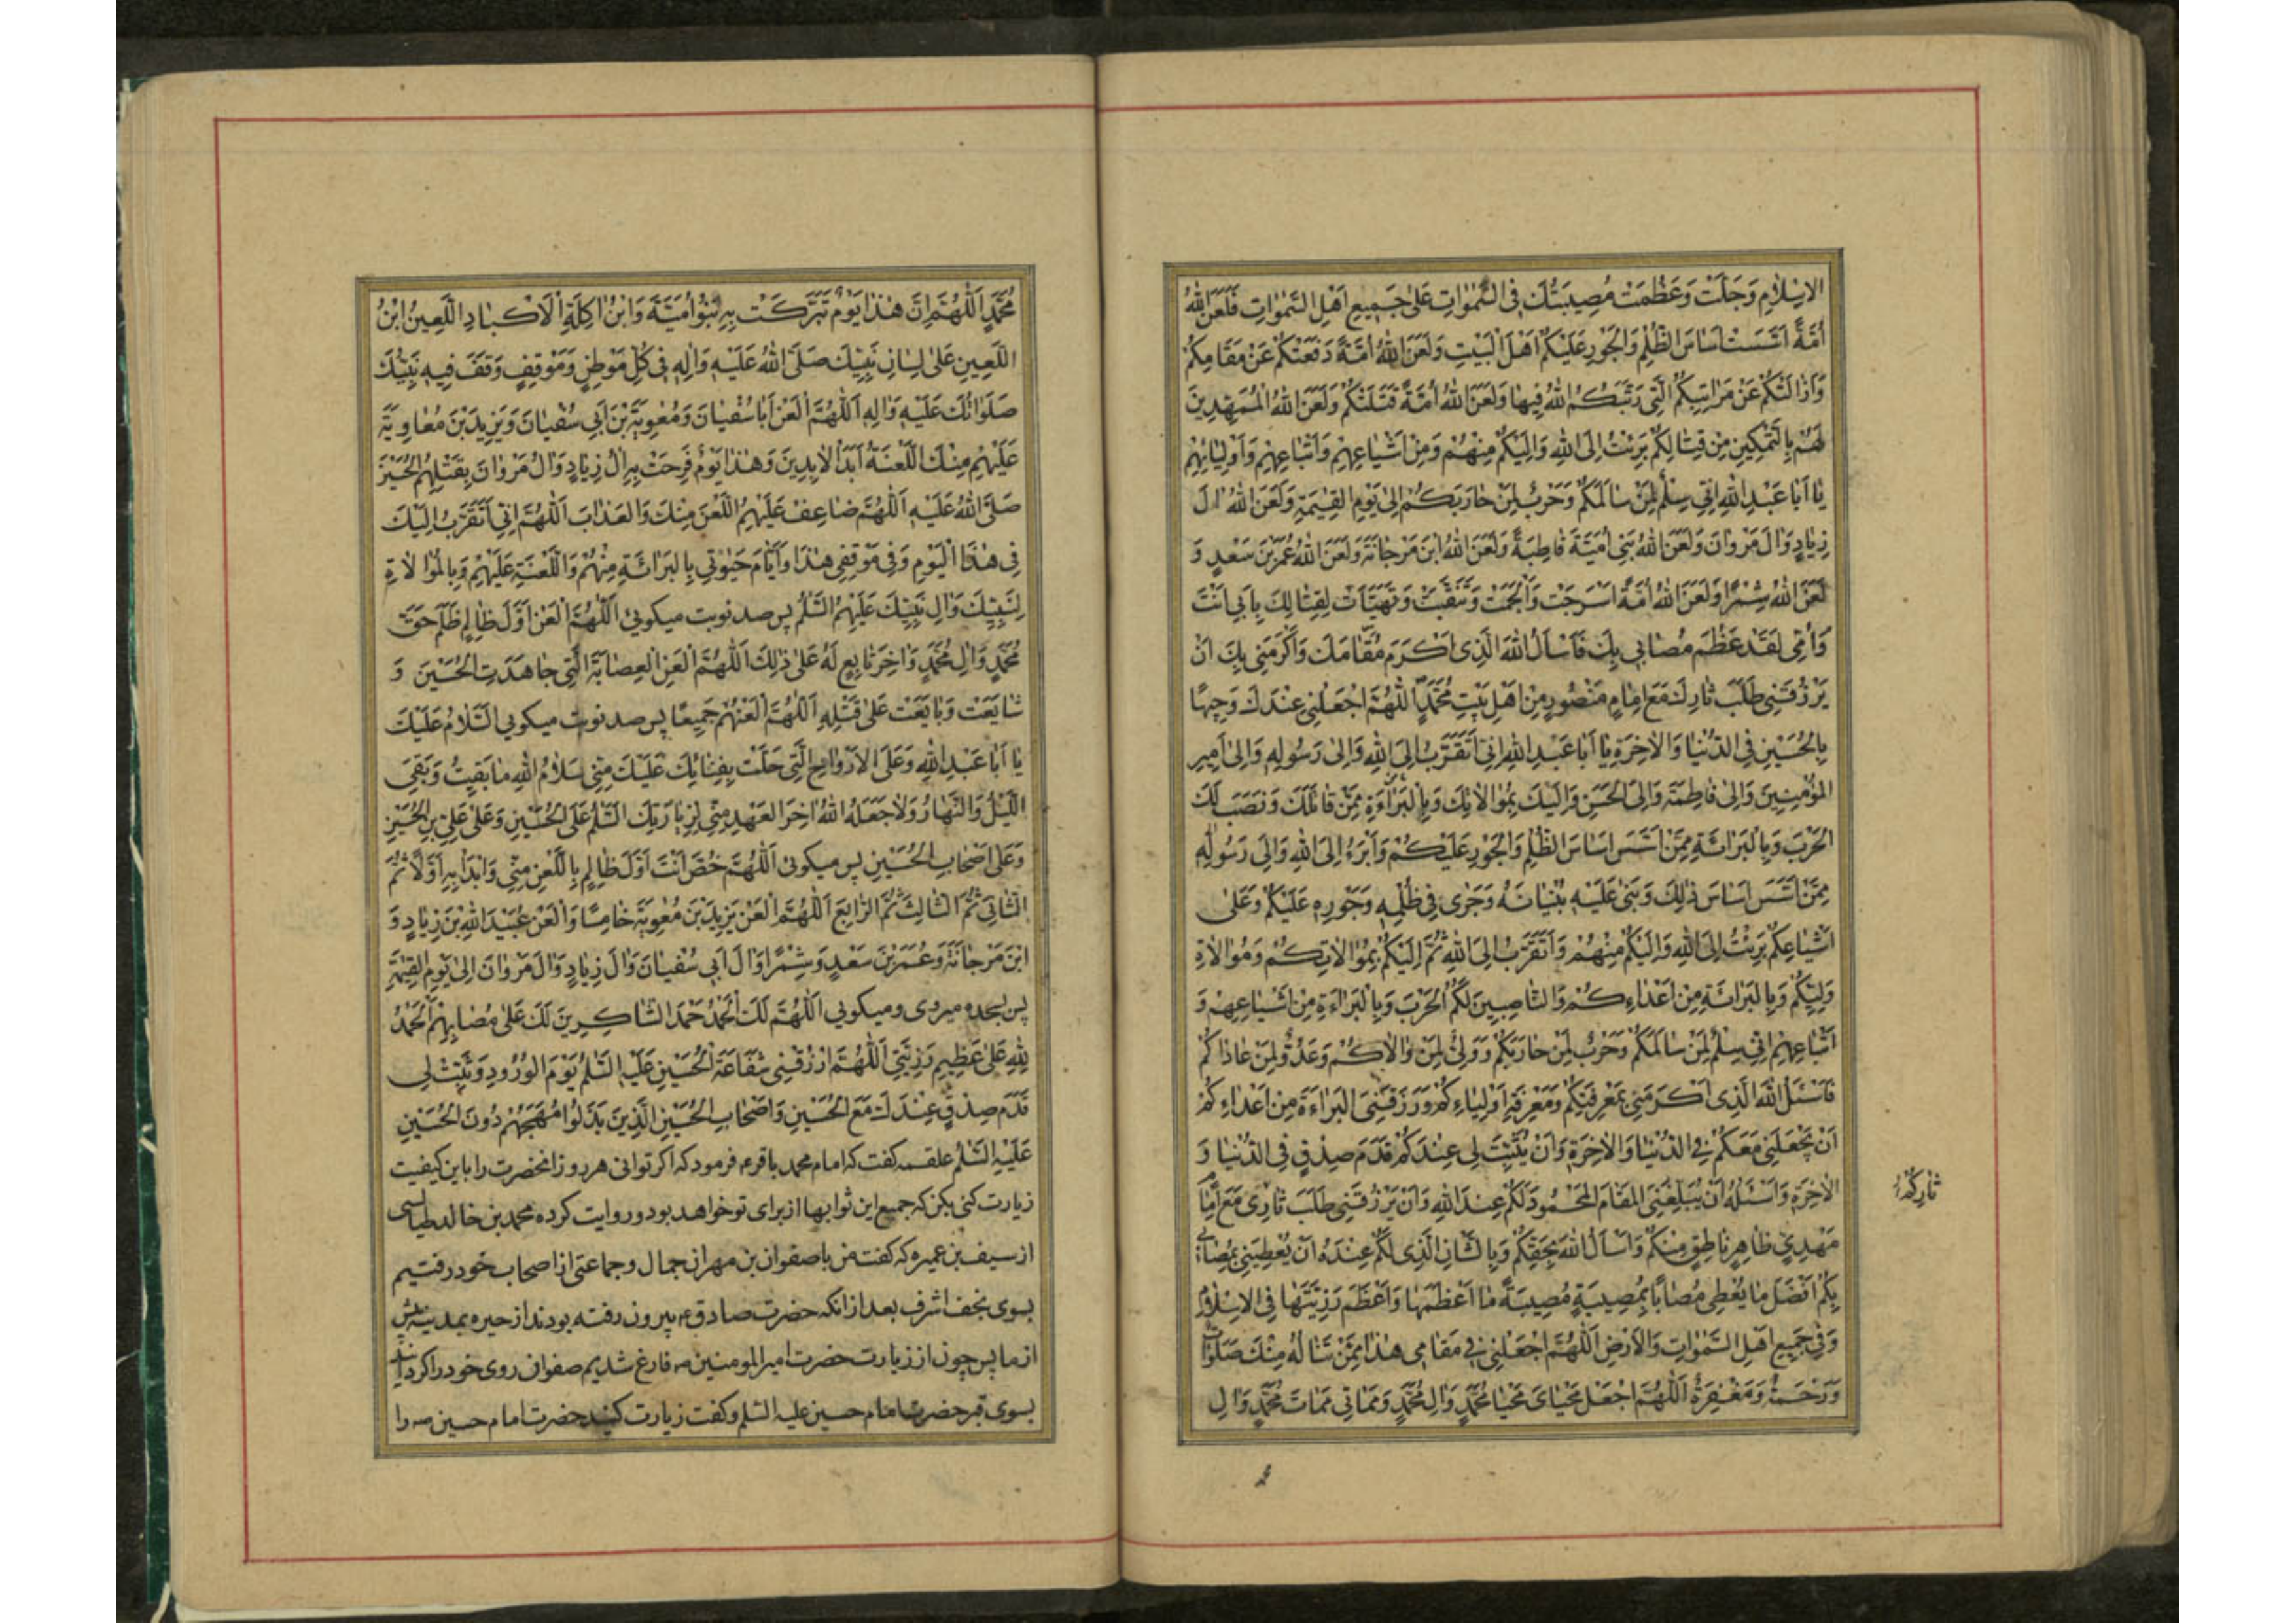 الاِسْلامِ وَجَلَّتْ وَعَظُمَتْ مُصِيبَتُكَ فِي السَّمٰوَاتِ عَلىٰ جَمِيعِ اَهْلِ السَّمٰوَاتِ فَلَعَنَ اللهُ
اُمَّةً اَسَّسَتْ اَسَاسَ الظُّلْمِ وَالْجَوْرِ عَلَيْكُمْ اَهْلَ الْبَيْتِ وَلَعَنَ اللهُ اُمَّةً دَفَعَتْكُمْ عَنْ مَقَامِكُمْ
وَاَزَالَتْكُمْ عَنْ مَرَاتِبِكُمُ الَّتِي رَتَّبَكُمُ اللهُ فِيهَا وَلَعَنَ اللهُ اُمَّةً قَتَلَتْكُمْ وَلَعَنَ اللهُ الْمُمَهِّدِينَ
لَهُمْ بِالتَّمْكِينِ مِنْ قِتَالِكُمْ بَرِئْتُ اِلَى اللهِ وَاِلَيْكُمْ مِنْهُمْ وَمِنْ اَشْيَاعِهِمْ وَاَتْبَاعِهِمْ وَاَوْلِيَائِهِمْ
يَا اَبَا عَبْدِ اللهِ اِنِّي سِلْمٌ لِمَنْ سَالَمَكُمْ وَحَرْبٌ لِمَنْ حَارَبَكُمْ اِلىٰ يَوْمِ الْقِيٰمَةِ وَلَعَنَ اللهُ اٰلَ
زِيَادٍ وَاٰلَ مَرْوَانَ وَلَعَنَ اللهُ بَنِي اُمَيَّةَ قَاطِبَةً وَلَعَنَ اللهُ ابْنَ مَرْجَانَةَ وَلَعَنَ اللهُ عُمَرَ بْنَ سَعْدٍ وَ
لَعَنَ اللهُ شِمْرًا وَلَعَنَ اللهُ اُمَّةً اَسْرَجَتْ وَاَلْجَمَتْ وَتَنَقَّبَتْ وَتَهَيَّاَتْ لِقِتَالِكَ بِاَبِي اَنْتَ
وَاُمِّي لَقَدْ عَظُمَ مُصَابِي بِكَ فَاَسْاَلُ اللهَ الَّذِي اَكْرَمَ مَقَامَكَ وَاَكْرَمَنِي بِكَ اَنْ
يَرْزُقَنِي طَلَبَ ثَارِكَ مَعَ اِمَامٍ مَنْصُورٍ مِنْ اَهْلِ بَيْتِ مُحَمَّدٍ اَللّٰهُمَّ اجْعَلْنِي عِنْدَكَ وَجِيهًا
بِالْحُسَيْنِ فِي الدُّنْيَا وَالْاٰخِرَةِ يَا اَبَا عَبْدِ اللهِ اِنِّي اَتَقَرَّبُ اِلَى اللهِ وَاِلىٰ رَسُولِهِ وَاِلىٰ اَمِيرِ
الْمُؤْمِنِينَ وَاِلىٰ فَاطِمَةَ وَاِلَى الْحَسَنِ وَاِلَيْكَ بِمُوَالَاتِكَ وَبِالْبَرَاءَةِ مِمَّنْ قَاتَلَكَ وَنَصَبَ لَكَ
الْحَرْبَ وَبِالْبَرَائَةِ مِمَّنْ اَسَّسَ اَسَاسَ الظُّلْمِ وَالْجَوْرِ عَلَيْكُمْ وَاَبْرَءُ اِلَى اللهِ وَاِلىٰ رَسُولِهِ
مِمَّنْ اَسَّسَ اَسَاسَ ذٰلِكَ وَبَنىٰ عَلَيْهِ بُنْيَانَهُ وَجَرىٰ فِي ظُلْمِهِ وَجَوْرِهِ عَلَيْكُمْ وَعَلىٰ
اَشْيَاعِكُمْ بَرِئْتُ اِلَى اللهِ وَاِلَيْكُمْ مِنْهُمْ وَاَتَقَرَّبُ اِلَى اللهِ ثُمَّ اِلَيْكُمْ بِمُوَالَاتِكُمْ وَمُوَالَاةِ
وَلِيِّكُمْ وَبِالْبَرَائَةِ مِنْ اَعْدَاءِكُمْ وَالنَّاصِبِينَ لَكُمُ الْحَرْبَ وَبِالْبَرَاءَةِ مِنْ اَشْيَاعِهِمْ وَ
اَتْبَاعِهِمْ اِنِّي سِلْمٌ لِمَنْ سَالَمَكُمْ وَحَرْبٌ لِمَنْ حَارَبَكُمْ وَوَلِيٌّ لِمَنْ وَالَاكُمْ وَعَدُوٌّ لِمَنْ عَادَاكُمْ
فَاَسْئَلُ اللهَ الَّذِي اَكْرَمَنِي بِمَعْرِفَتِكُمْ وَمَعْرِفَةِ اَوْلِيَاءِكُمْ وَرَزَقَنِيَ الْبَرَاءَةَ مِنْ اَعْدَاءِكُمْ
اَنْ يَجْعَلَنِي مَعَكُمْ فِي الدُّنْيَا وَالْاٰخِرَةِ وَاَنْ يُثَبِّتَ لِي عِنْدَكُمْ قَدَمَ صِدْقٍ فِي الدُّنْيَا وَ
الْاٰخِرَةِ وَاَسْئَلُهُ اَنْ يُبَلِّغَنِيَ الْمَقَامَ الْمَحْمُودَ لَكُمْ عِنْدَ اللهِ وَاَنْ يَرْزُقَنِي طَلَبَ ثَارِي مَعَ اِمَامٍ
ثَارِكُمْ
مَهْدِيٍّ ظَاهِرٍ نَاطِقٍ مِنْكُمْ وَاَسْاَلُ اللهَ بِحَقِّكُمْ وَبِالشَّانِ الَّذِي لَكُمْ عِنْدَهُ اَنْ يُعْطِيَنِي بِمُصَابِي
بِكُمْ اَفْضَلَ مَا يُعْطِي مُصَابًا بِمُصِيبَةٍ مُصِيبَةً مَا اَعْظَمَهَا وَاَعْظَمَ رَزِيَّتَهَا فِي الْاِسْلَامِ
وَفِي جَمِيعِ اَهْلِ السَّمٰوَاتِ وَالْاَرْضِ اَللّٰهُمَّ اجْعَلْنِي فِي مَقَامِي هٰذَا مِمَّنْ تَنَالُهُ مِنْكَ صَلَوَاتٌ
وَرَحْمَةٌ وَمَغْفِرَةٌ اَللّٰهُمَّ اجْعَلْ مَحْيَايَ مَحْيَا مُحَمَّدٍ وَاٰلِ مُحَمَّدٍ وَمَمَاتِي مَمَاتَ مُحَمَّدٍ وَاٰلِ
مُحَمَّدٍ اَللّٰهُمَّ اِنَّ هٰذَا يَوْمٌ تَبَرَّكَتْ بِهِ بَنُو اُمَيَّةَ وَابْنُ اٰكِلَةِ الْاَكْبَادِ اللَّعِينُ ابْنُ
اللَّعِينِ عَلىٰ لِسَانِ نَبِيِّكَ صَلَّى اللهُ عَلَيْهِ وَاٰلِهِ فِي كُلِّ مَوْطِنٍ وَمَوْقِفٍ وَقَفَ فِيهِ نَبِيُّكَ
صَلَوَاتُكَ عَلَيْهِ وَاٰلِهِ اَللّٰهُمَّ الْعَنْ اَبَا سُفْيَانَ وَمُعٰوِيَةَ بْنَ اَبِي سُفْيَانَ وَيَزِيدَ بْنَ مُعَاوِيَةَ
عَلَيْهِمْ مِنْكَ اللَّعْنَةُ اَبَدَ الْاٰبِدِينَ وَهٰذَا يَوْمٌ فَرِحَتْ بِهِ اٰلُ زِيَادٍ وَاٰلُ مَرْوَانَ بِقَتْلِهِمُ الْحُسَيْنَ
صَلَّى اللهُ عَلَيْهِ اَللّٰهُمَّ ضَاعِفْ عَلَيْهِمُ اللَّعْنَ مِنْكَ وَالْعَذَابَ اَللّٰهُمَّ اِنِّي اَتَقَرَّبُ اِلَيْكَ
فِي هٰذَا الْيَوْمِ وَفِي مَوْقِفِي هٰذَا وَاَيَّامَ حَيٰوتِي بِالْبَرَائَةِ مِنْهُمْ وَاللَّعْنَةِ عَلَيْهِمْ وَبِالْمُوَالَاةِ
لِنَبِيِّكَ وَاٰلِ نَبِيِّكَ عَلَيْهِمُ السَّلَمُ پس صد نوبت میکوئی اَللّٰهُمَّ الْعَنْ اَوَّلَ ظَالِمٍ ظَلَمَ حَقَّ
مُحَمَّدٍ وَاٰلِ مُحَمَّدٍ وَاٰخِرَ تَابِعٍ لَهُ عَلىٰ ذٰلِكَ اَللّٰهُمَّ الْعَنِ الْعِصَابَةَ الَّتِي جَاهَدَتِ الْحُسَيْنَ وَ
شَايَعَتْ وَبَايَعَتْ عَلىٰ قَتْلِهِ اَللّٰهُمَّ الْعَنْهُمْ جَمِيعًا پس صد نوبت میکویی اَلسَّلَامُ عَلَيْكَ
يَا اَبَا عَبْدِ اللهِ وَعَلَى الْاَرْوَاحِ الَّتِي حَلَّتْ بِفِنَائِكَ عَلَيْكَ مِنِّي سَلَامُ اللهِ مَا بَقِيتُ وَبَقِيَ
اللَّيْلُ وَالنَّهَارُ وَلَا جَعَلَهُ اللهُ اٰخِرَ الْعَهْدِ مِنِّي لِزِيَارَتِكَ اَلسَّلَمُ عَلَى الْحُسَيْنِ وَعَلىٰ عَلِيِّ بْنِ الْحُسَيْنِ
وَعَلىٰ اَصْحَابِ الْحُسَيْنِ پس میکوئی اَللّٰهُمَّ خُصَّ اَنْتَ اَوَّلَ ظَالِمٍ بِاللَّعْنِ مِنِّي وَابْدَاْ بِهِ اَوَّلًا ثُمَّ
الثَّانِيَ ثُمَّ الثَّالِثَ ثُمَّ الرَّابِعَ اَللّٰهُمَّ الْعَنْ يَزِيدَ بْنَ مُعٰوِيَةَ خَامِسًا وَالْعَنْ عُبَيْدَ اللهِ بْنَ زِيَادٍ وَ
ابْنَ مَرْجَانَةَ وَعُمَرَ بْنَ سَعْدٍ وَشِمْرًا وَاٰلَ اَبِي سُفْيَانَ وَاٰلَ زِيَادٍ وَاٰلَ مَرْوَانَ اِلىٰ يَوْمِ الْقِيٰمَةِ
پس بسجده میروی ومیکویی اَللّٰهُمَّ لَكَ الْحَمْدُ حَمْدَ الشَّاكِرِينَ لَكَ عَلىٰ مُصَابِهِمْ اَلْحَمْدُ
لِلّٰهِ عَلىٰ عَظِيمِ رَزِيَّتِي اَللّٰهُمَّ ارْزُقْنِي شَفَاعَةَ الْحُسَيْنِ عَلَيْهِ السَّلَمُ يَوْمَ الْوُرُودِ وَثَبِّتْ لِي
قَدَمَ صِدْقٍ عِنْدَكَ مَعَ الْحُسَيْنِ وَاَصْحَابِ الْحُسَيْنِ الَّذِينَ بَذَلُوا مُهَجَهُمْ دُونَ الْحُسَيْنِ
عَلَيْهِ السَّلَمُ علقمه کفت که امام محمد باقر؏ فرمود که اکر توانی هر روز انحضرت را باین کیفیت
زیارت کنی بکن که جمیع این ثوابها از برای تو خواهد بود و روایت کرده محمد بن خالد طیالسی
از سیف بن عمیره که کفت من با صفوان بن مهران جمال و جماعتی از اصحاب خود رفتیم
بسوی نجف اشرف بعد از انکه حضرت صادق؏ بیرون رفته بودند از حیره بمدینه پیش
از ما پس چون از زیارت حضرت امیر المومنین؏ فارغ شدیم صفوان روی خود را کردانید
بسوی قبر حضرت امام حسین علیه السلم و کفت زیارت کنید حضرت امام حسین؏ را